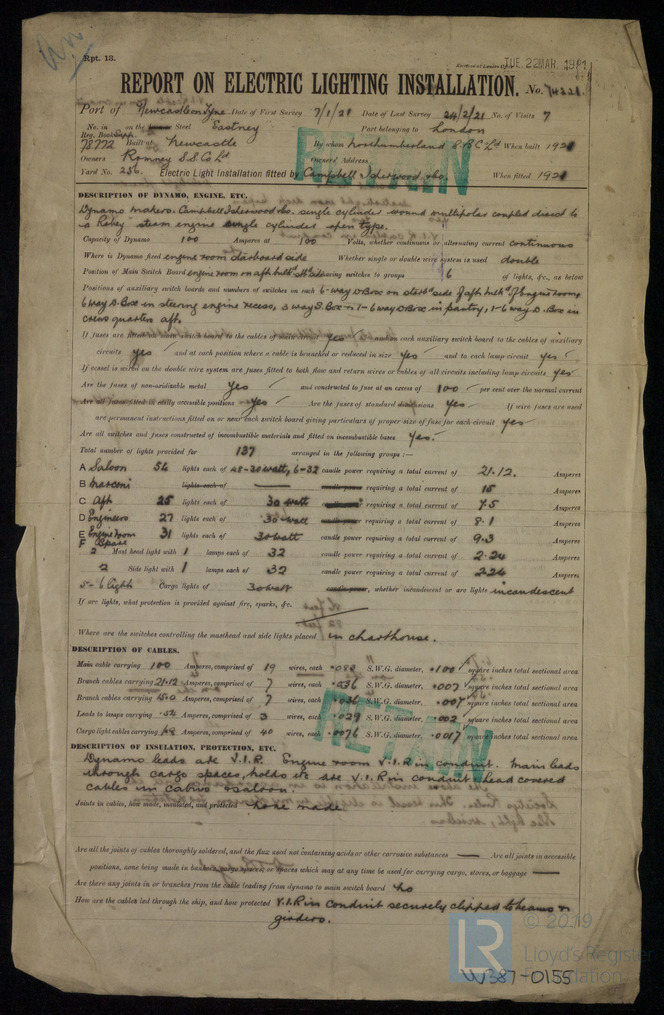 Rpt. 13.
TUE. 22 MAR. 1921
REPORT ON ELECTRIC LIGHTING INSTALLATION. No. 74228
Port of Newcastle on Tyne Date of First Survey 7/1/21 Date of Last Survey 24/2/21 No. of Visits 7
No. in on the Steel Eastney Port belonging to London
Reg. Book
78772 Built at Newcastle By whom Northumberland S.B. Co Ld When built 1921
Owners Romney S.S. Co Ld Owners' Address
Yard No. 256. Electric Light Installation fitted by Campbell & Isherwood Ltd. When fitted 1921
RETAIN
DESCRIPTION OF DYNAMO, ENGINE, ETC.
Dynamo makers. Campbell & Isherwood Ltd. single cylinder wound multipolar coupled direct to
a Robey steam engine single cylinder open type.
Capacity of Dynamo 100 Amperes at 100 Volts, whether continuous or alternating current continuous
Where is Dynamo fixed engine room starboard side Whether single or double wire system is used double
Position of Main Switch Board engine room on aft bulkd stbd side having switches to groups 6 of lights, &c., as below
Positions of auxiliary switch boards and numbers of switches on each 6-way D. Box on starbd side of aft bulkd of Engine room,
6 way D. Box in steering engine recess, 3 way S. Box & 1-6 way D. Box in pantry, 1-6 way D. Box in
crews quarters aft.
If fuses are fitted on main switch board to the cables of main circuit yes and on each auxiliary switch board to the cables of auxiliary
circuits yes and at each position where a cable is branched or reduced in size yes and to each lamp circuit yes
If vessel is wired on the double wire system are fuses fitted to both flow and return wires or cables of all circuits including lamp circuits yes
Are the fuses of non-oxidizable metal yes and constructed to fuse at an excess of 100 per cent over the normal current
Are all fuses fitted in easily accessible positions yes Are the fuses of standard dimensions yes If wire fuses are used
are permanent instructions fitted on or near each switch board giving particulars of proper size of fuse for each circuit yes
Are all switches and fuses constructed of incombustible materials and fitted on incombustible bases yes.
Total number of lights provided for 137 arranged in the following groups :—
A Saloon 54 lights each of 48-30 watt, 6-32 candle power requiring a total current of 21.12. Amperes
B Marconi lights each of — candle power requiring a total current of 15 Amperes
C Aft 25 lights each of 30 watt candle power requiring a total current of 7.5 Amperes
D Engineers 27 lights each of 30 watt candle power requiring a total current of 8.1 Amperes
E Engine room 31 lights each of 30 watt candle power requiring a total current of 9.3 Amperes
F Spare
2 Mast head light with 1 lamps each of 32 candle power requiring a total current of 2.24 Amperes
2 Side light with 1 lamps each of 32 candle power requiring a total current of 2.24 Amperes
5-6 lights Cargo lights of 30 watt candle power, whether incandescent or arc lights incandescent
If arc lights, what protection is provided against fire, sparks, &c.
Where are the switches controlling the masthead and side lights placed in charthouse.
DESCRIPTION OF CABLES.
Main cable carrying 100 Amperes, comprised of 19 wires, each .083 S.W.G. diameter, .100 square inches total sectional area
Branch cables carrying 21.12 Amperes, comprised of 7 wires, each .036 S.W.G. diameter, .007 square inches total sectional area
Branch cables carrying 15.0 Amperes, comprised of 7 wires, each .036 S.W.G. diameter, .007 square inches total sectional area
Leads to lamps carrying .54 Amperes, comprised of 3 wires, each .029 S.W.G. diameter, .002 square inches total sectional area
Cargo light cables carrying 1.8 Amperes, comprised of 40 wires, each .0076 S.W.G. diameter, .0017 square inches total sectional area
RETAIN
DESCRIPTION OF INSULATION, PROTECTION, ETC.
Dynamo leads are V.I.R. Engine room V.I.R. in conduit. Main leads
through cargo spaces, holds etc are V.I.R in conduit & lead covered
cables in cabins & saloon.
Joints in cables, how made, insulated, and protected none made
Are all the joints of cables thoroughly soldered, and the flux used not containing acids or other corrosive substances — Are all joints in accessible
positions, none being made in bunkers or spaces which may at any time be used for carrying cargo, stores, or baggage —
Are there any joints in or branches from the cable leading from dynamo to main switch board no
How are the cables led through the ship, and how protected V.I.R in conduit securely clipped to beams &
girders.
© 2019
LR Lloyd's Register
Foundation
W387-0155